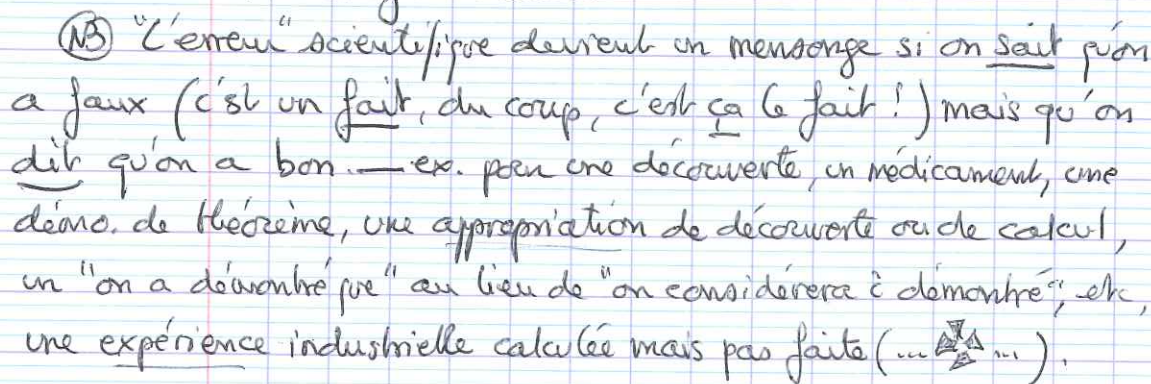 NB "L'erreur" scientifique devient un mensonge si on sait qu'on
a faux (c'est un fait, du coup, c'est ça le fait !) mais qu'on
dit qu'on a bon. — ex. pour une découverte, un médicament, une
démo. de théorème, une appropriation de découverte ou de calcul,
un "on a démontré que" au lieu de "on considérera č démontré", etc,
une expérience industrielle calculée mais pas faite (... ...).